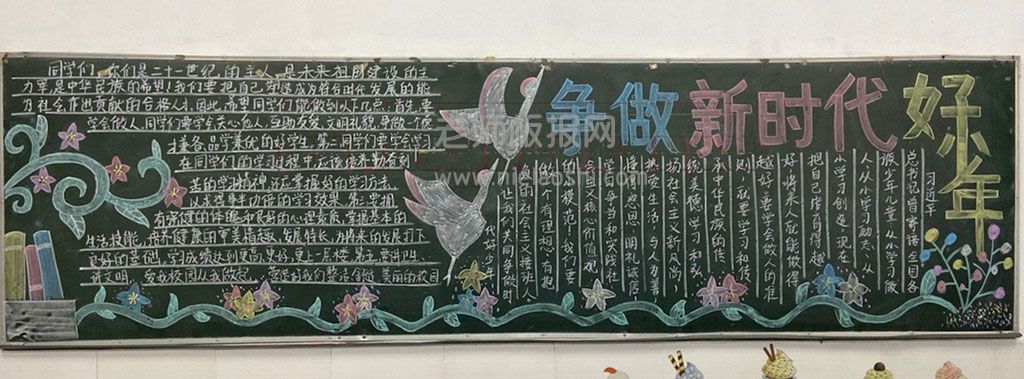 争做新时代好少年
同学们，你们是二十一世纪的主人，是未来祖国建设的主
力军是中华民族的希望！我们要把自己塑造成为富有时代发展的能
为社会作出贡献的合格人才。因此，希望同学们能做到以下几点：首先，要
学会做人，同学们要学会关心他人，互助友爱，文明礼貌，争做一个德
才兼备，品学兼优的好学生。第二，同学们要学会学习，
在同学们的学习过程中，应该培养勤奋刻
苦的学习精神，还应掌握好的学习方法，
以求得事半功倍的学习效果。第三，要拥
有强健的体魄和良好的心理素质，掌握基本的
生活技能，培养健康的审美情趣，发展特长，为将来的发展打下
良好的基础，学习成绩达到更高
美丽的校园
习近平
总书记曾寄语全国各
族少年儿童，从小学习做
人、从小学习立志、从
小学习创造。现在
把自己培育得越
好，将来人就能做得
越好。要学会做人的准
则，就要学习和传
承中华民族的传
统美德，学习和弘
扬社会主义新风尚，
热爱生活，与人为善，
懂得感恩，明礼诚信，
学习争当和实践社
会主义核心价值观
的小模范！我们要
做个有理想、有抱
负的社会主义接班人
让我们共同争做时
代好少年
老师板报网